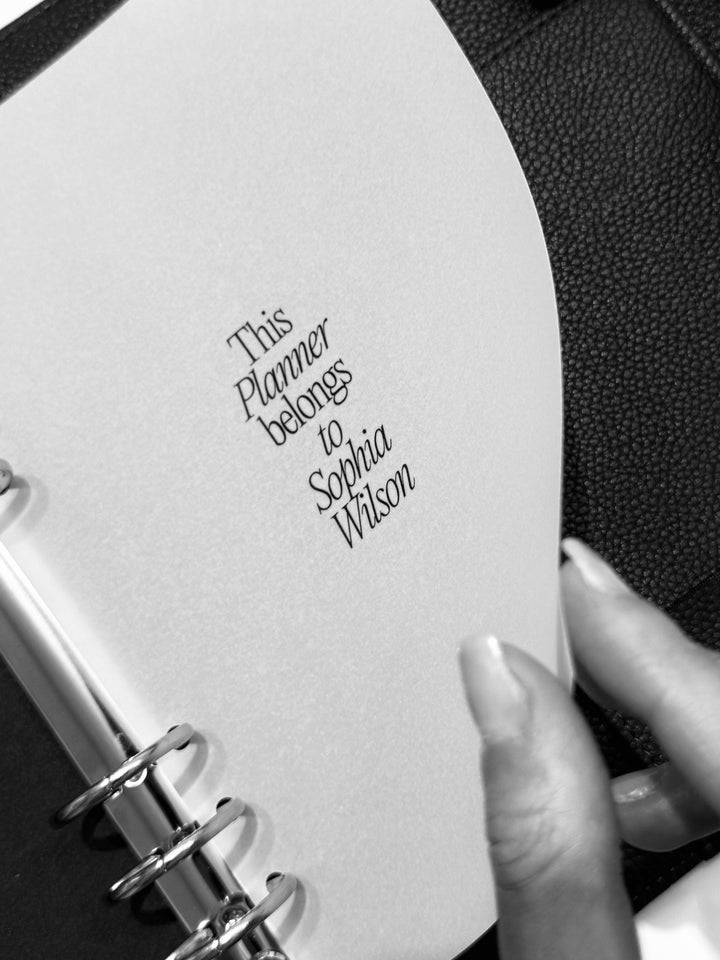 This
Planner
belongs
to
Sophia
Wilson